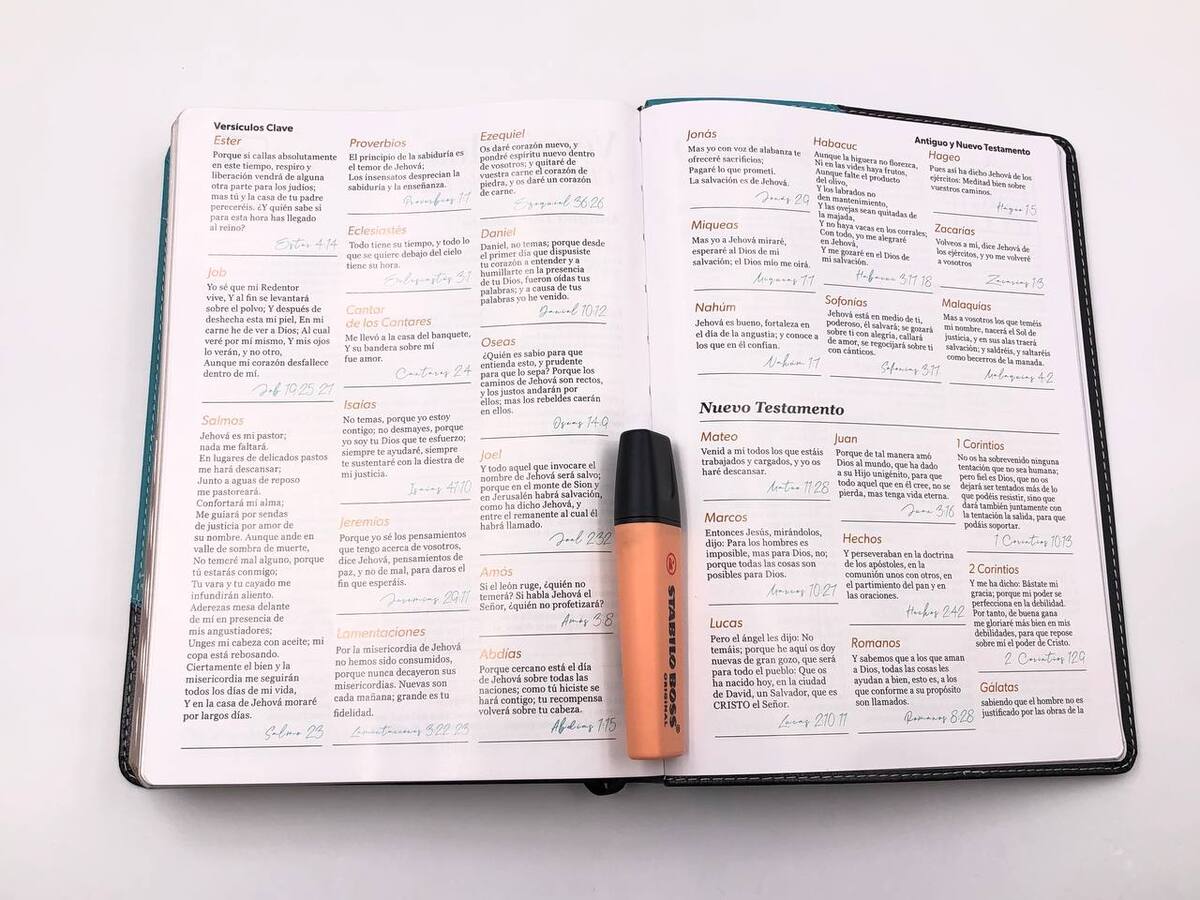 Versículos Clave
Ester
Porque si callas absolutamente
en este tiempo, respiro y
liberación vendrá de alguna
otra parte para los judíos;
mas tú y la casa de tu padre
pereceréis. ¿Y quién sabe si
para esta hora has llegado
al reino?
Ester 4:14
Job
Yo sé que mi Redentor
vive, Y al fin se levantará
sobre el polvo; Y después de
deshecha esta mi piel, En mi
carne he de ver a Dios; Al cual
veré por mí mismo, Y mis ojos
lo verán, y no otro,
Aunque mi corazón desfallece
dentro de mí.
Job 19:25-27
Salmos
Jehová es mi pastor;
nada me faltará.
En lugares de delicados pastos
me hará descansar;
Junto a aguas de reposo
me pastoreará.
Confortará mi alma;
Me guiará por sendas
de justicia por amor de
su nombre. Aunque ande en
valle de sombra de muerte,
No temeré mal alguno, porque
tú estarás conmigo;
Tu vara y tu cayado me
infundirán aliento.
Aderezas mesa delante
de mí en presencia de
mis angustiadores;
Unges mi cabeza con aceite; mi
copa está rebosando.
Ciertamente el bien y la
misericordia me seguirán
todos los días de mi vida,
Y en la casa de Jehová moraré
por largos días.
Salmo 23
Proverbios
El principio de la sabiduría es
el temor de Jehová;
Los insensatos desprecian la
sabiduría y la enseñanza.
Proverbios 1:7
Eclesiastés
Todo tiene su tiempo, y todo lo
que se quiere debajo del cielo
tiene su hora.
Eclesiastés 3:1
Cantar
de los Cantares
Me llevó a la casa del banquete,
Y su bandera sobre mí
fue amor.
Cantares 2:4
Isaías
No temas, porque yo estoy
contigo; no desmayes, porque
yo soy tu Dios que te esfuerzo;
siempre te ayudaré, siempre
te sustentaré con la diestra de
mi justicia.
Isaías 41:10
Jeremías
Porque yo sé los pensamientos
que tengo acerca de vosotros,
dice Jehová, pensamientos de
paz, y no de mal, para daros el
fin que esperáis.
Jeremías 29:11
Lamentaciones
Por la misericordia de Jehová
no hemos sido consumidos,
porque nunca decayeron sus
misericordias. Nuevas son
cada mañana; grande es tu
fidelidad.
Lamentaciones 3:22-23
Ezequiel
Os daré corazón nuevo, y
pondré espíritu nuevo dentro
de vosotros; y quitaré de
vuestra carne el corazón de
piedra, y os daré un corazón
de carne.
Ezequiel 36:26
Daniel
Daniel, no temas; porque desde
el primer día que dispusiste
tu corazón a entender y a
humillarte en la presencia
de tu Dios, fueron oídas tus
palabras; y a causa de tus
palabras yo he venido.
Daniel 10:12
Oseas
¿Quién es sabio para que
entienda esto, y prudente
para que lo sepa? Porque los
caminos de Jehová son rectos,
y los justos andarán por
ellos; mas los rebeldes caerán
en ellos.
Oseas 14:9
Joel
Y todo aquel que invocare el
nombre de Jehová será salvo;
porque en el monte de Sion y
en Jerusalén habrá salvación,
como ha dicho Jehová, y
entre el remanente al cual él
habrá llamado.
Joel 2:32
Amós
Si el león ruge, ¿quién no
temerá? Si habla Jehová el
Señor, ¿quién no profetizará?
Amós 3:8
Abdías
Porque cercano está el día
de Jehová sobre todas las
naciones; como tú hiciste se
hará contigo; tu recompensa
volverá sobre tu cabeza.
Abdías 1:15
STABILO BOSS
ORIGINAL
Antiguo y Nuevo Testamento
Jonás
Mas yo con voz de alabanza te
ofreceré sacrificios;
Pagaré lo que prometí.
La salvación es de Jehová.
Jonás 2:9
Miqueas
Mas yo a Jehová miraré,
esperaré al Dios de mi
salvación; el Dios mío me oirá.
Miqueas 7:7
Nahúm
Jehová es bueno, fortaleza en
el día de la angustia; y conoce a
los que en él confían.
Nahúm 1:7
Habacuc
Aunque la higuera no florezca,
Ni en las vides haya frutos,
Aunque falte el producto
del olivo,
Y los labrados no
den mantenimiento,
Y las ovejas sean quitadas de
la majada,
Y no haya vacas en los corrales;
Con todo, yo me alegraré
en Jehová,
Y me gozaré en el Dios de
mi salvación.
Habacuc 3:17-18
Sofonías
Jehová está en medio de ti,
poderoso, él salvará; se gozará
sobre ti con alegría, callará
de amor, se regocijará sobre ti
con cánticos.
Sofonías 3:17
Hageo
Pues así ha dicho Jehová de los
ejércitos: Meditad bien sobre
vuestros caminos.
Hageo 1:5
Zacarías
Volveos a mí, dice Jehová de
los ejércitos, y yo me volveré
a vosotros
Zacarías 1:3
Malaquías
Mas a vosotros los que teméis
mi nombre, nacerá el Sol de
justicia, y en sus alas traerá
salvación; y saldréis, y saltaréis
como becerros de la manada.
Malaquías 4:2
Nuevo Testamento
Mateo
Venid a mí todos los que estáis
trabajados y cargados, y yo os
haré descansar.
Mateo 11:28
Marcos
Entonces Jesús, mirándolos,
dijo: Para los hombres es
imposible, mas para Dios, no;
porque todas las cosas son
posibles para Dios.
Marcos 10:27
Lucas
Pero el ángel les dijo: No
temáis; porque he aquí os doy
nuevas de gran gozo, que será
para todo el pueblo: Que os
ha nacido hoy, en la ciudad
de David, un Salvador, que es
CRISTO el Señor.
Lucas 2:10-11
Juan
Porque de tal manera amó
Dios al mundo, que ha dado
a su Hijo unigénito, para que
todo aquel que en él cree, no se
pierda, mas tenga vida eterna.
Juan 3:16
Hechos
Y perseveraban en la doctrina
de los apóstoles, en la
comunión unos con otros, en
el partimiento del pan y en
las oraciones.
Hechos 2:42
Romanos
Y sabemos que a los que aman
a Dios, todas las cosas les
ayudan a bien, esto es, a los
que conforme a su propósito
son llamados.
Romanos 8:28
1 Corintios
No os ha sobrevenido ninguna
tentación que no sea humana;
pero fiel es Dios, que no os
dejará ser tentados más de lo
que podéis resistir, sino que
dará también juntamente con
la tentación la salida, para que
podáis soportar.
1 Corintios 10:13
2 Corintios
Y me ha dicho: Bástate mi
gracia; porque mi poder se
perfecciona en la debilidad.
Por tanto, de buena gana
me gloriaré más bien en mis
debilidades, para que repose
sobre mí el poder de Cristo.
2 Corintios 12:9
Gálatas
sabiendo que el hombre no es
justificado por las obras de la